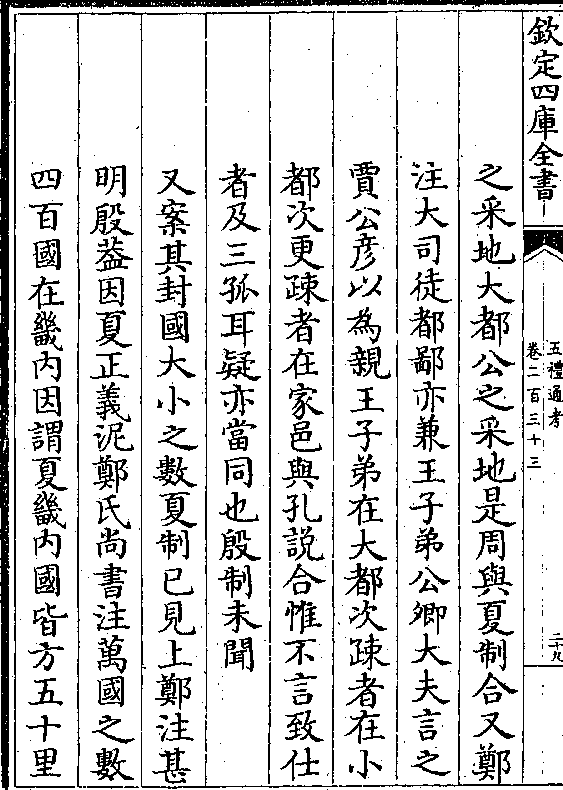 欽定四庫全書
五禮通考
卷二百三十三
二十九
之采地大都公之采地是周與夏制合又鄭
注大司徒都鄙亦兼王子弟公卿大夫言之
賈公彦以為親王子弟在大都次疎者在小
都次更疎者在家邑與孔説合惟不言致仕
者及三孤耳疑亦當同也殷制未聞
又案其封國大小之數夏制已見上鄭注甚
明殷葢因夏正義泥鄭氏尚書注萬國之數
四百國在畿内因謂夏畿内國皆方五十里